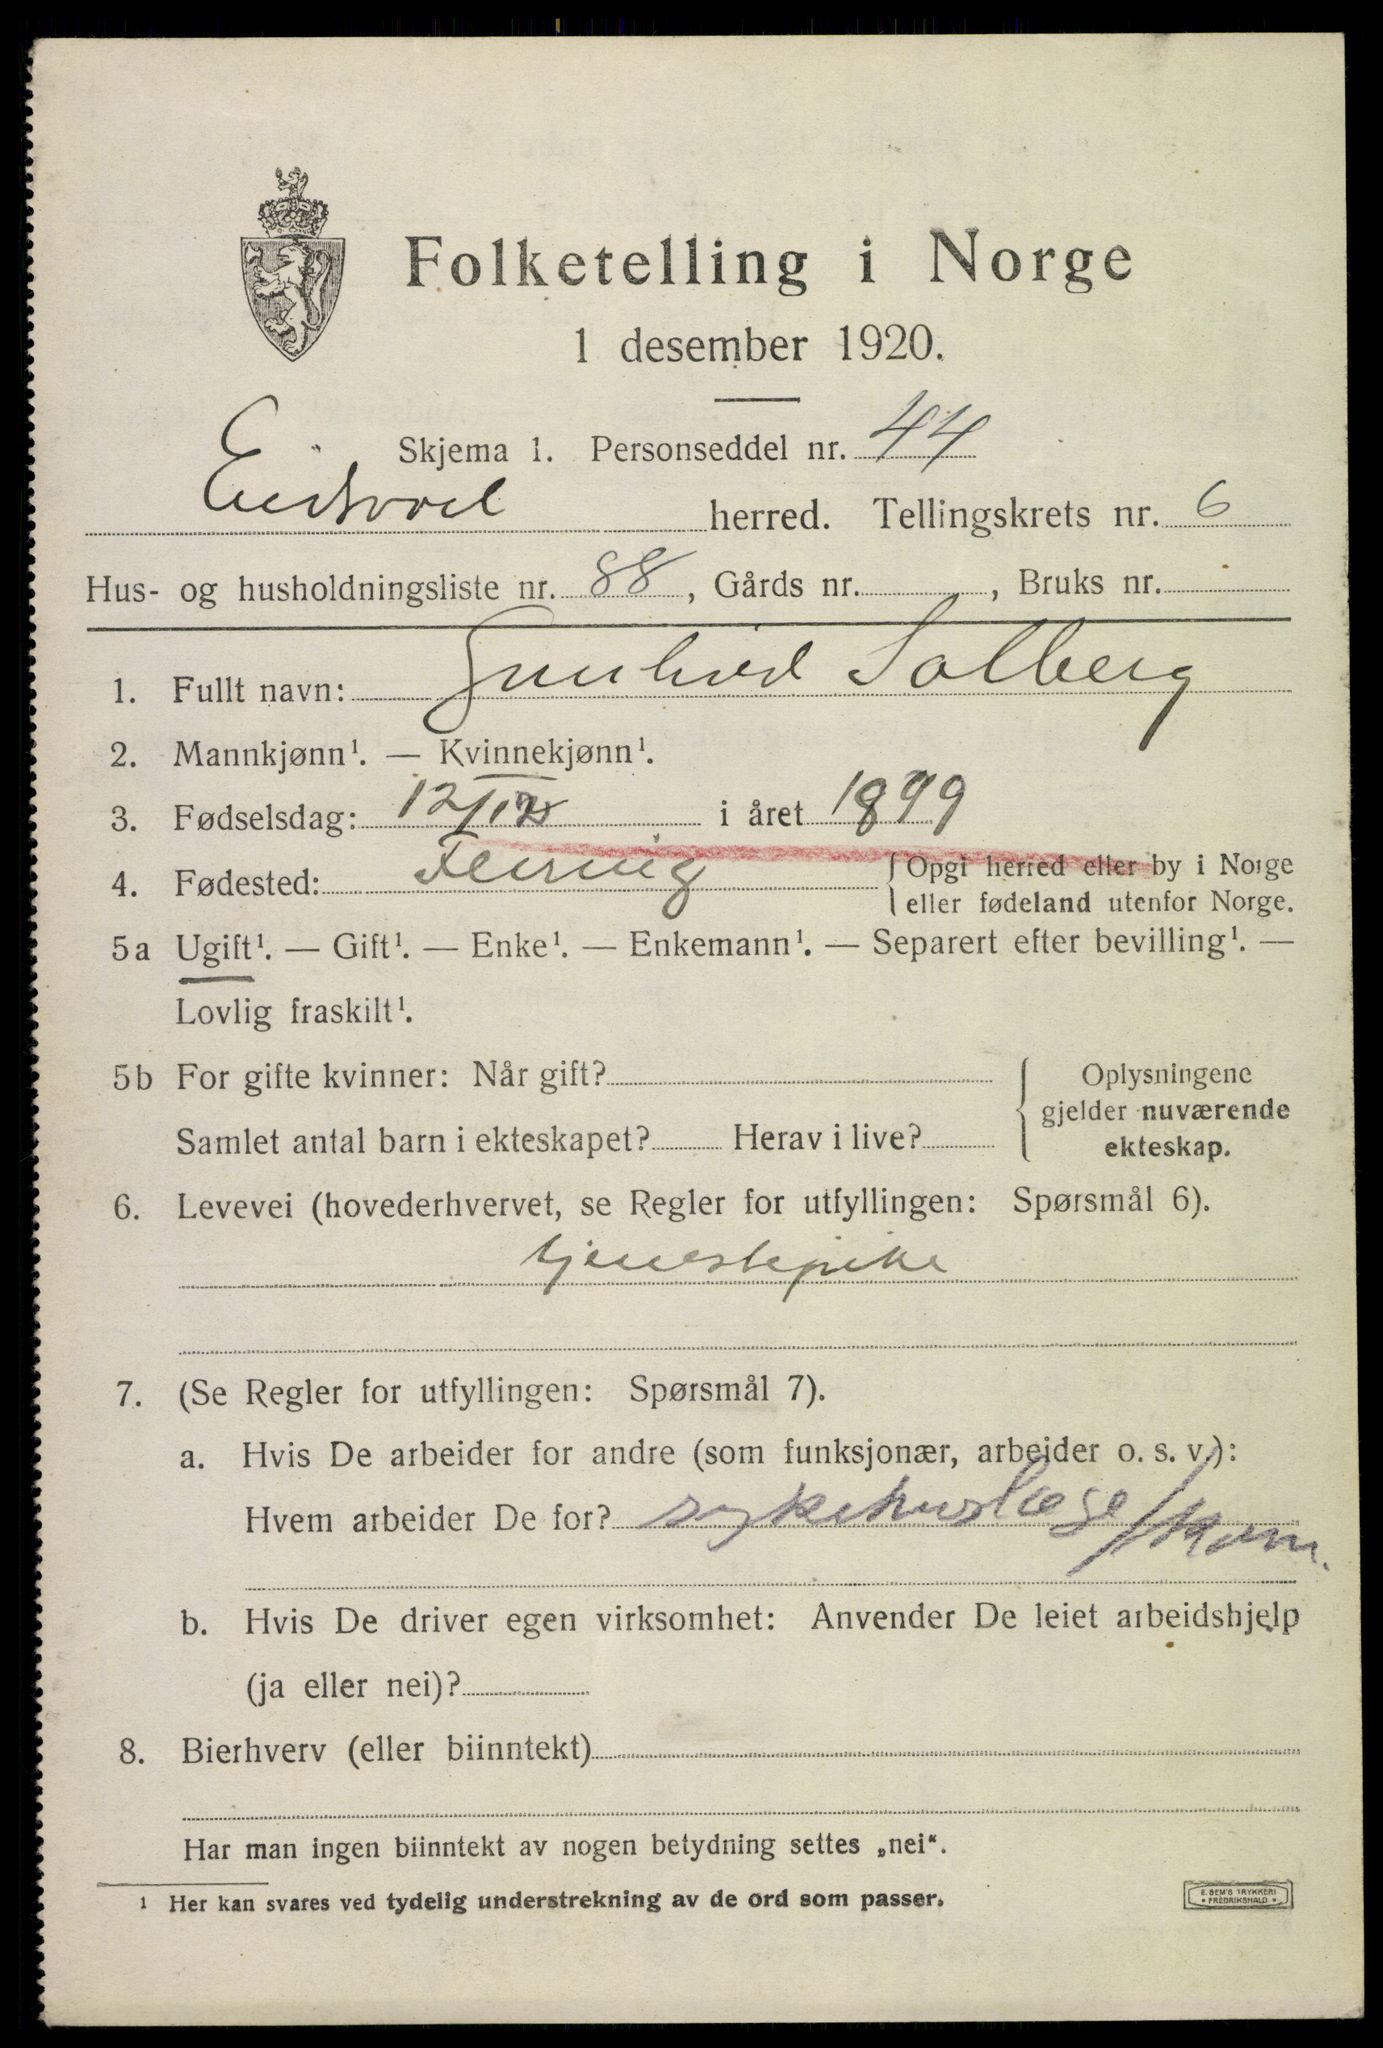 Folketelling i Norge
1 desember 1920.
Skjema 1. Personseddel nr. 44
Eidsvoll herred. Tellingskrets nr. 6
Hus- og husholdningsliste nr. 88, Gårds nr. , Bruks nr.
1. Fullt navn: Gunhild Solberg
2. Mannkjønn¹. — Kvinnekjønn¹.
3. Fødselsdag: 12/12 i året 1899
4. Fødested: Feiring { Opgi herred eller by i Norge
eller fødeland utenfor Norge.
5a Ugift¹. — Gift¹. — Enke¹. — Enkemann¹. — Separert efter bevilling¹. —
Lovlig fraskilt¹.
5b For gifte kvinner: Når gift? { Oplysningene
gjelder nuværende
Samlet antal barn i ekteskapet? Herav i live? ekteskap.
6. Levevei (hovederhvervet, se Regler for utfyllingen: Spørsmål 6).
tjenestepike
7. (Se Regler for utfyllingen: Spørsmål 7).
a. Hvis De arbeider for andre (som funksjonær, arbeider o. s. v.):
Hvem arbeider De for? sykehuslæge
b. Hvis De driver egen virksomhet: Anvender De leiet arbeidshjelp
(ja eller nei)?
8. Bierhverv (eller biinntekt)
Har man ingen biinntekt av nogen betydning settes „nei“.
¹ Her kan svares ved tydelig understrekning av de ord som passer.
E. SEM'S TRYKKERI
• FREDRIKSHALD •